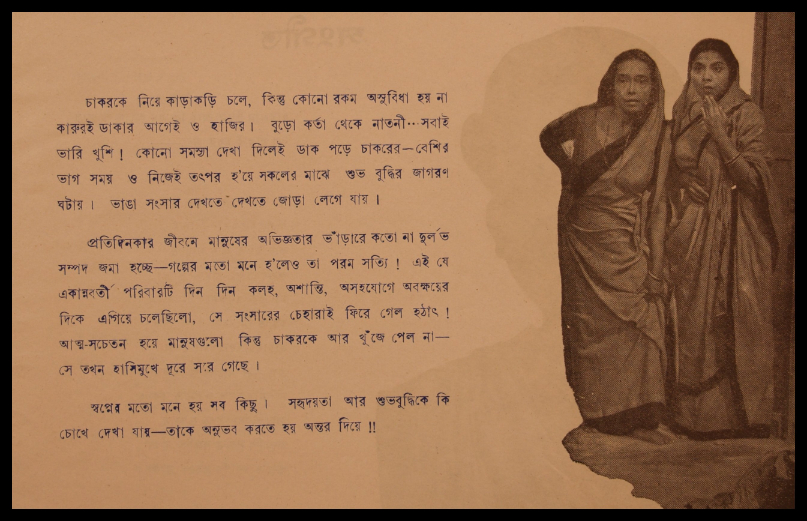 চাকরকে নিয়ে কাড়াকড়ি চলে, কিন্তু কোনো রকম অসুবিধা হয় না
কারুরই ডাকার আগেই ও হাজির। বুড়ো কর্তা থেকে নাতনী···সবাই
ভারি খুশি! কোনো সমস্যা দেখা দিলেই ডাক পড়ে চাকরের—বেশির
ভাগ সময় ও নিজেই তৎপর হ'য়ে সকলের মাঝে শুভ বুদ্ধির জাগরণ
ঘটায়। ভাঙা সংসার দেখতে দেখতে জোড়া লেগে যায়।
প্রতিদিনকার জীবনে মানুষের অভিজ্ঞতার ভাঁড়ারে কতো না দুর্লভ
সম্পদ জমা হচ্ছে—গল্পের মতো মনে হ'লেও তা পরম সত্যি! এই যে
একান্নবর্তী পরিবারটি দিন দিন কলহ, অশান্তি, অসহযোগে অবক্ষয়ের
দিকে এগিয়ে চলেছিলো, সে সংসারের চেহারাই ফিরে গেল হঠাৎ!
আত্ম-সচেতন হয়ে মানুষগুলো কিন্তু চাকরকে আর খুঁজে পেল না—
সে তখন হাসিমুখে দূরে সরে গেছে।
স্বপ্নের মতো মনে হয় সব কিছু। সহৃদয়তা আর শুভবুদ্ধিকে কি
চোখে দেখা যায়—তাকে অনুভব করতে হয় অন্তর দিয়ে!!